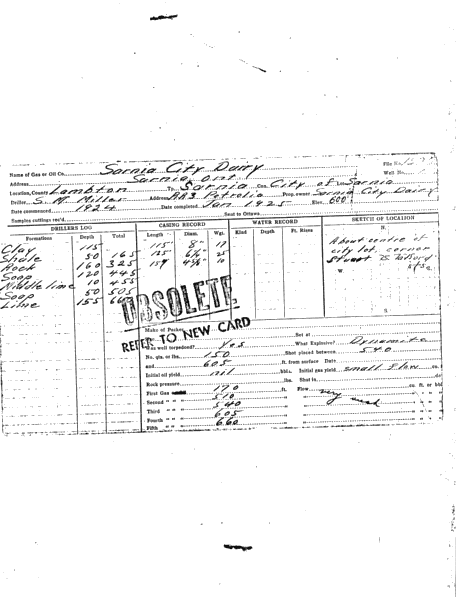 File No.
Name of Gas or Oil Co. Sarnia City Dairy
Well No.
Address Sarnia Ont
Location, County Lambton Tp. Sarnia Con. City of Lot Sarnia
Driller, S. M. Miller Address RR3 Petrolia Prop. owner Sarnia City Dairy
Date commenced 1924 Date completed Jan 1925 Elev. 600
Samples cuttings rec'd Sent to Ottawa
DRILLERS LOG CASING RECORD WATER RECORD SKETCH OF LOCATION
Formations Depth Total Length Diam. Wgt. Kind Depth Ft. Rises N.
Clay 115 115 8" 17
Shale 50 165 125 25
Rock 160 325 159 10
Soap 120 445
Middle lime 10 455
Soap 50 505
Lime 155 660
About centre of
city lot, corner
Stuart & Talford
sts
W.
S.
OBSOLETE
REFER TO NEW CARD
Make of Packer Set at
Was well torpedoed? Yes What Explosive? Dynamite
No. qts. or lbs. 150 Shot placed between 540
and 605 ft. from surface Date
Initial oil yield nil bbls. Initial gas yield small flow cu.
Rock pressure lbs. Shut in
First Gas 170 ft. Flow cu. ft. or bbl
Second " " " 510
Third " " " 540
Fourth " " " 605
Fifth " " " 660